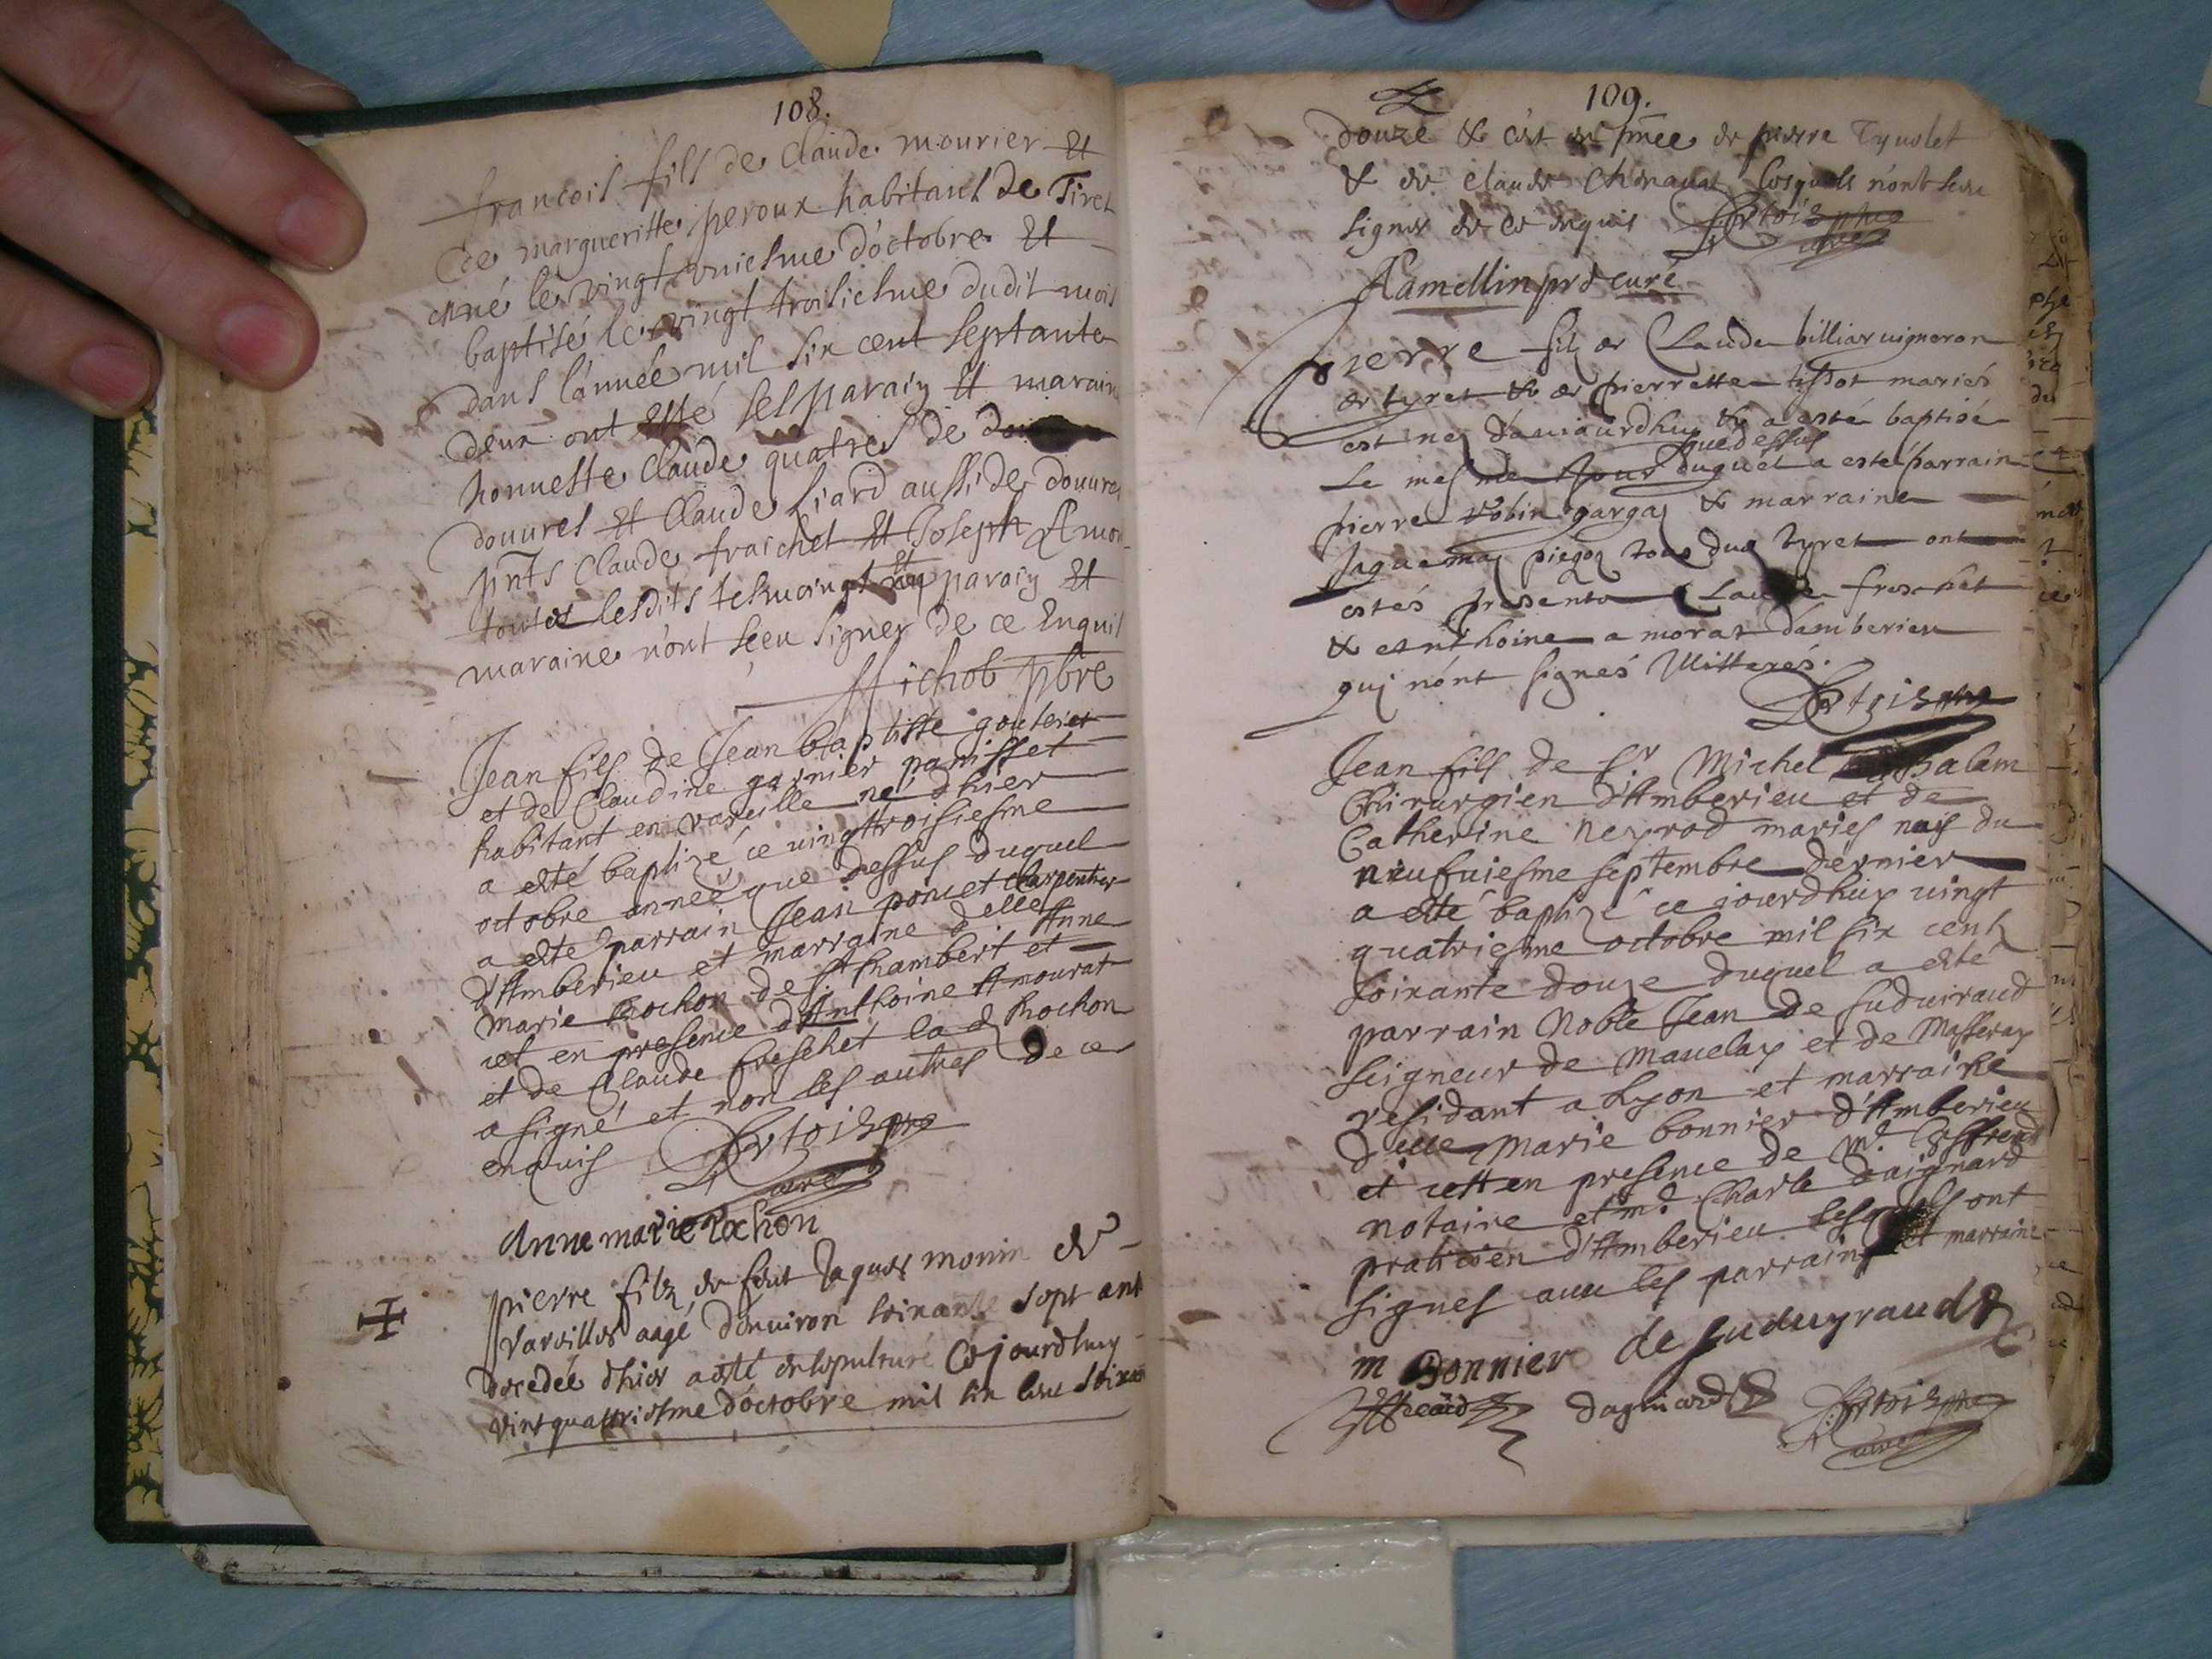 108.
francois fils de Claude mourier Et
de margueritte peroux habitant de Tiret
né le vingt vniesme d'octobre Et
baptisé le vingt troisiesme dudit mois
dans l'année mil six cent septante
deux ont Esté ses parain Et marain
honneste Claude quatre de
douures Et Claude Liard aussi de douures
pnts Claude fraichet Et Joseph Amou
toutes lesdits tesmoingt Et parain Et
maraine n'ont sceu signer de ce Enquis
Michob pbre
Jean fils de Jean baptiste goutier
et de Claudine garnier panisset
habitant en vareille né d'hier
a esté baptizé ce vingttroisiesme
octobre année que dessus duquel
a esté parrain Jean poncet Charpentier
d'Amberieu et marraine delle Anne
Marie Rochon de st Rambert et
cet en presence d'Anthoine Amourat
et de Claude freschet la d Rochon
a signé et non les autres de ce
enquis
curé
Anne marie Rochon
pierre filz de feut Jaques monin de
Vareilles aagé d'enuiron soixante sept ans
decedée d'hier a esté ensepulturé Cejourdhuy
vint quattriesme d'octobre mil six cens soixan
109.
douze & c'est en pnce de pierre Tyuolet
& de Claude Chenauat lesquels n'ont sceu
signer de ce enquis
curé
Hamellin prd curé
pierre filz de Claude billiar uigneron
de tyret & de pierrette tissot mariés
est nez d'auiaurdhuy & a esté baptisé
que dessus
Le mesme Jour duquel a esté parrain
pierre robin garga & marraine
piegoz tous dud tyret ont
estés presents Claude freschet
& anthoine a morat d'amberieu
qui n'ont signés illitterés.
Jean fils de sr Michel salam
Chirurgien d'Amberieu et de
Catherine neyrod mariés nays du
neufuiesme septembre dernier
a esté baptizé ce jourdhuy uingt
quatriesme octobre mil six centz
soixante douze duquel a esté
parrain Noble Jean de suduiraud
seigneur de Mauelay et de Masseray
residant a Lyon et marraine
delle Marie bonnier d'Amberieu
et cett en presence de Me
notaire et me Charle daignard
praticien d'Amberieu lesquels ont
signes auec les parrain et marraine
m Bonnier de suduyraud
dagniard
curé